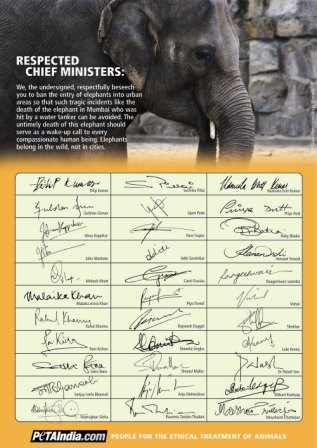 RESPECTED
CHIEF MINISTERS:
We, the undersigned, respectfully beseech
you to ban the entry of elephants into urban
areas so that such tragic incidents like the
death of the elephant in Mumbai who was
hit by a water tanker can be avoided. The
untimely death of this elephant should
serve as a wake-up call to every
compassionate human being: Elephants
belong in the wild, not in cities.
Dilip Kumar
Suchitra Pillai
Namrata Dutt Kumar
Gulshan Grover
Upen Patel
Priya Dutt
Ishaa Koppikar
Tara Gupta
Ruby Bhatia
John Abraham
Aditi Govitrikar
Hemant Trevedi
Mahesh Bhatt
Carol Gracias
Raageshwari Loomba
Malaika Khan
Piya Trivedi
Vishal
Rahul Khanna
Rajneesh Duggal
Shekhar
Ravi Kishen
Shamita Singha
Luke Kenny
Sana Banu
Sheetal Mallar
Dr Palash Sen
Sanjay Leela Bhansali
Anju Mahendroo
Ektaa Kashyap
Shatrughan Sinha
Raveena Tandon Thadani
Moushumi Chatterjee
PETAIndia.com PEOPLE FOR THE ETHICAL TREATMENT OF ANIMALS